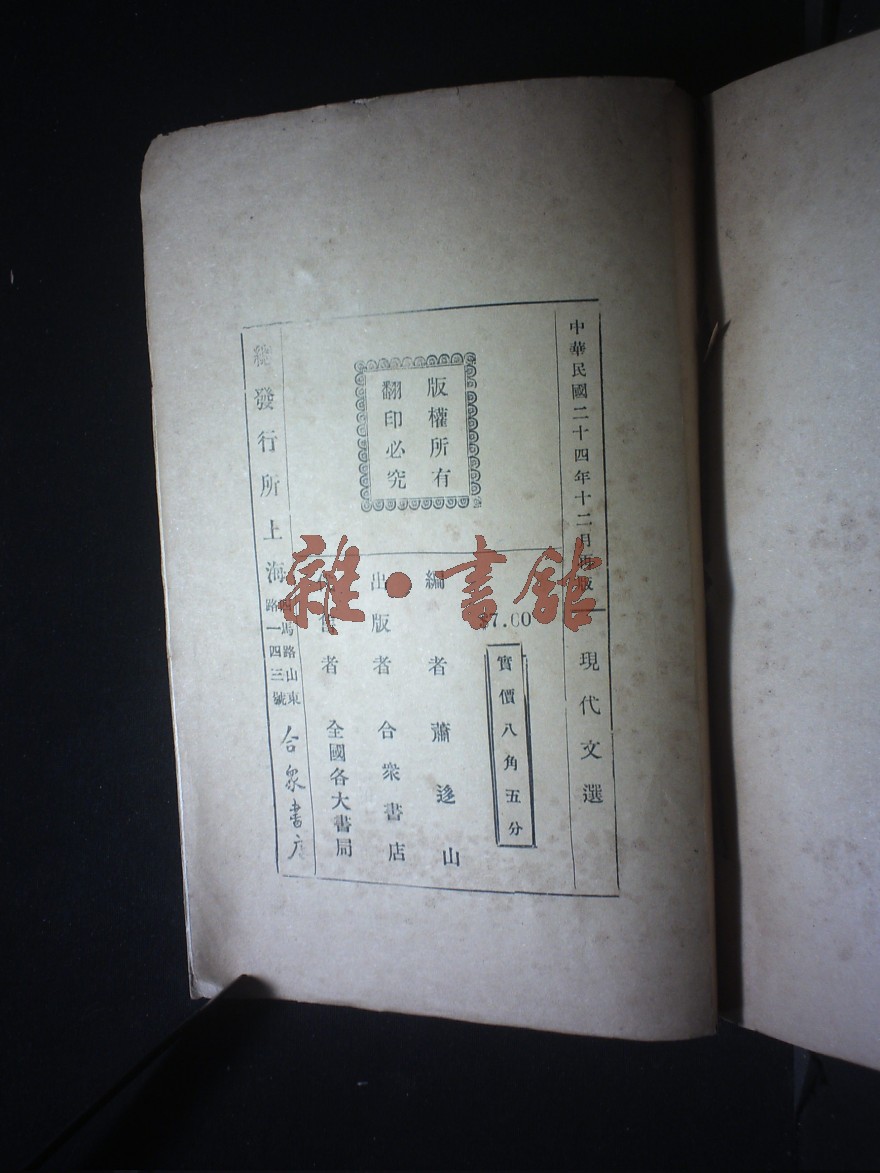 中華民國二十四年十二月再版
現代文選
版權所有
翻印必究
$7.00
實價八角五分
編者 蕭迻山
出版者 合衆書店
者 全國各大書局
總發行所上海
四馬路山東
路一四三號
合衆書店
雜·書館